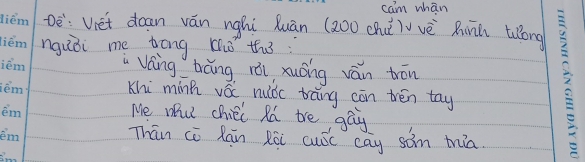 cảm nhận
Đề: Viết đoạn văn nghị luận (200 chữ) v về hình tượng
người mẹ trong khổ thơ:
"Vầng trăng rơi xuống vẫn tròn
Khi mình vốc nước trăng còn trên tay
Mẹ như chiếc lá tre gầy
Thân cò lặn lội cuốc cày sớm trưa.
điểm
điểm
iểm
iểm
ểm
ểm
THÍ SINH CẦN GHI ĐẦY ĐỦ